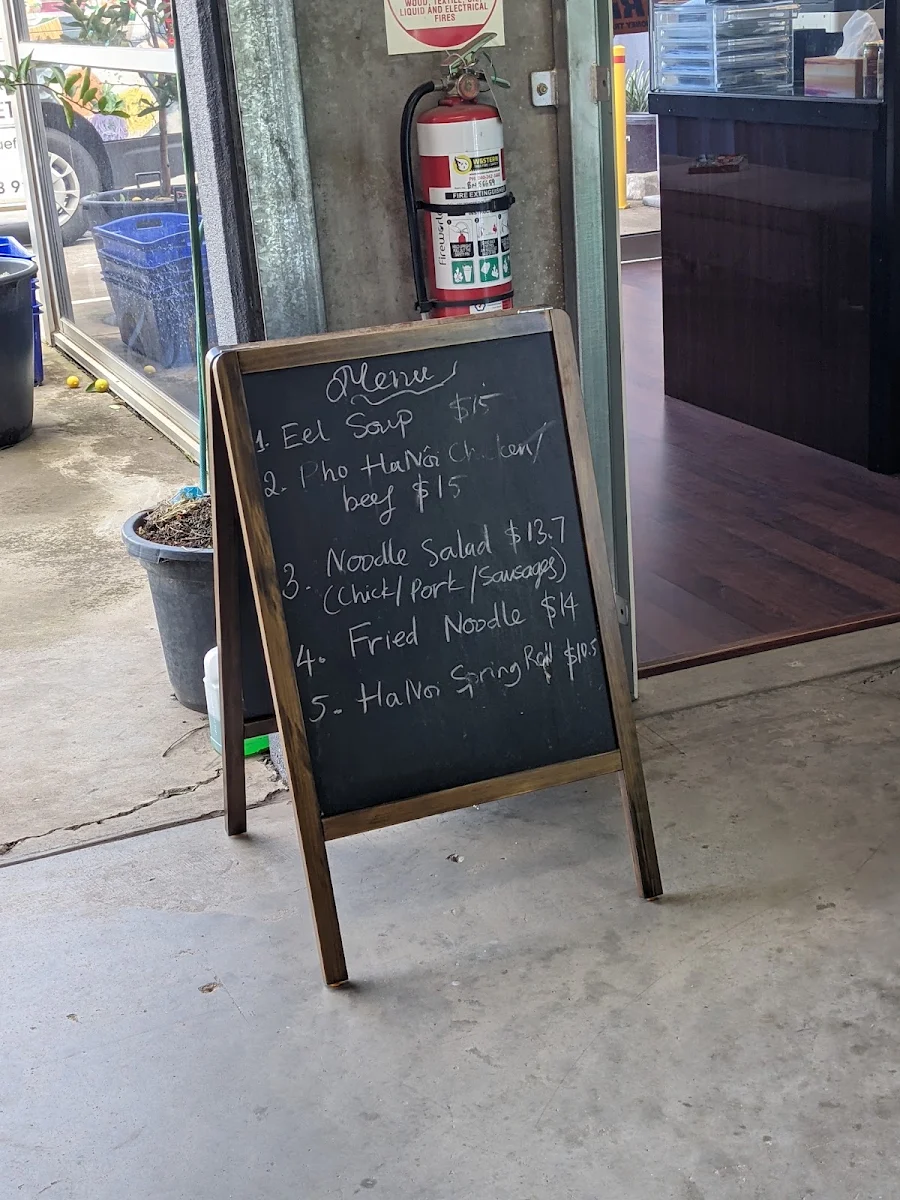 WOOD, TEXTILE,
LIQUID AND ELECTRICAL
FIRES
WESTERN
FIRE EXTINGUISHER
Fireworld
Menu
1. Eel Soup $15
2. Pho HaNôi Chicken/
beef $15
3. Noodle Salad $13.7
(Chick/Pork/Sausages)
4. Fried Noodle $14
5. HaNoi Spring Roll $10.5